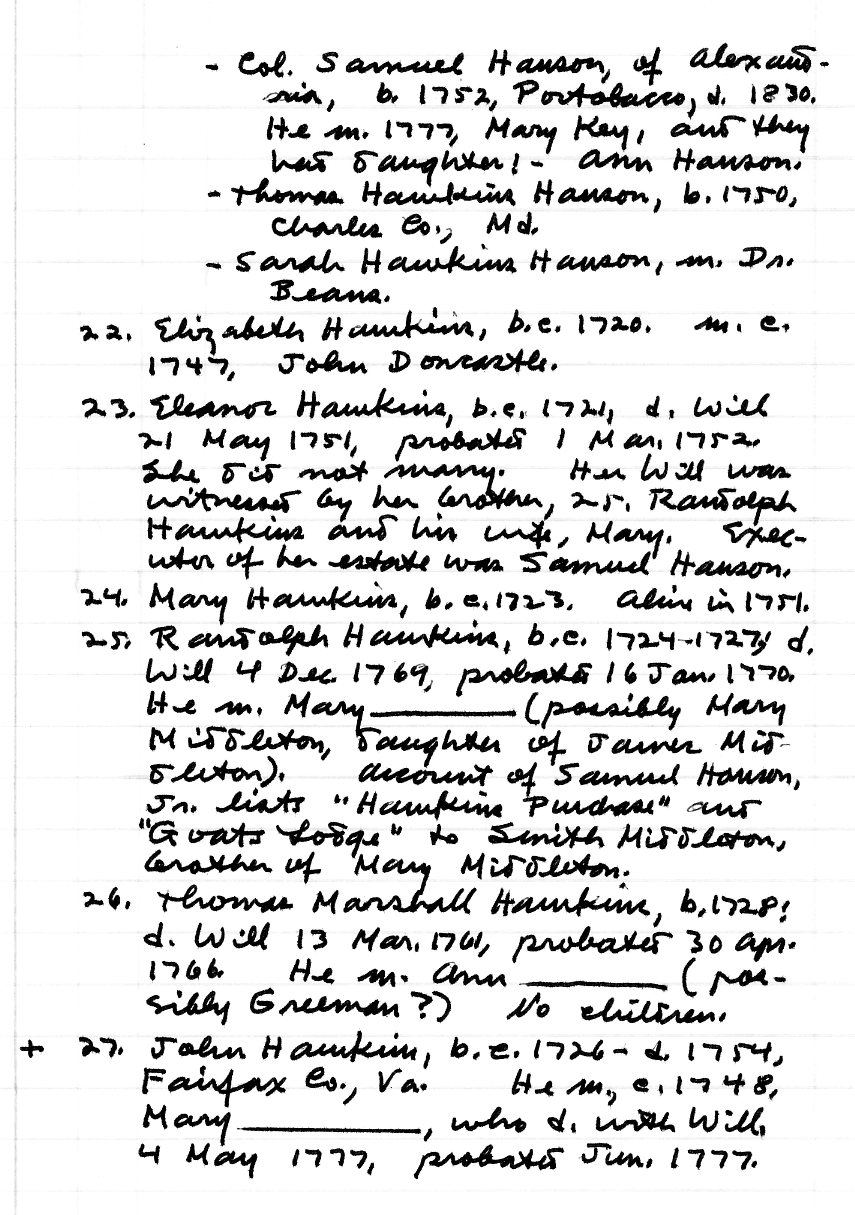 - Col. Samuel Hanson, of Alexand-
ria, b. 1752, Portobacco, d. 1830.
He m. 1777, Mary Key, and they
had daughter:- Ann Hanson.
- Thomas Hawkins Hanson, b. 1750,
Charles Co., Md.
- Sarah Hawkins Hanson, m. Dr.
Beans.
22. Elizabeth Hawkins, b.c. 1720. m. c.
1747, John Doncastle.
23. Eleanor Hawkins, b.c. 1721, d. Will
21 May 1751, probated 1 Mar. 1752.
She did not marry. Her Will was
witnessed by her brother, 25. Randolph
Hawkins and his wife, Mary. Exec-
utor of her estate was Samuel Hanson.
24. Mary Hawkins, b.c. 1723. Alive in 1751.
25. Randolph Hawkins, b.c. 1724-1727; d.
Will 4 Dec. 1769, probated 16 Jan. 1770.
He m. Mary ________ (possibly Mary
Middleton, daughter of James Mid-
dleton). Account of Samuel Hanson,
Jr. lists "Hawkins Purchase" and
"Goats Lodge" to Smith Middleton,
brother of Mary Middleton.
26. Thomas Marshall Hawkins, b. 1728;
d. Will 13 Mar. 1761, probated 30 Apr.
1766. He m. Ann ________ (pos-
sibly Greeman?) No children.
+ 27. John Hawkins, b.c. 1726 - d. 1754,
Fairfax Co., Va. He m., c. 1748,
Mary ________, who d. with Will
4 May 1777, probated Jun. 1777.